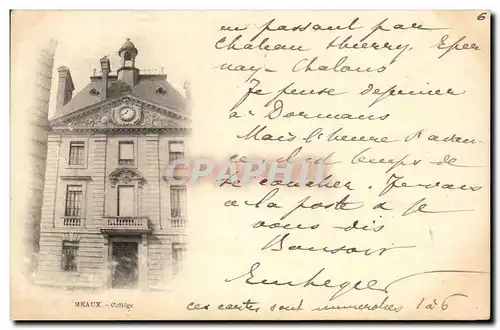 6
en passant par
Chateau thierry, Eper
nay - Chalons
Je pense dejeuner
a Dormans
Mais l'heure s'avan
ce il est temps de
se coucher. Je vais
a la poste & je
vous dis
Bonsoir
ces cartes sont numerotées 1 à 6
MEAUX. - Collège
CPHPA.COM